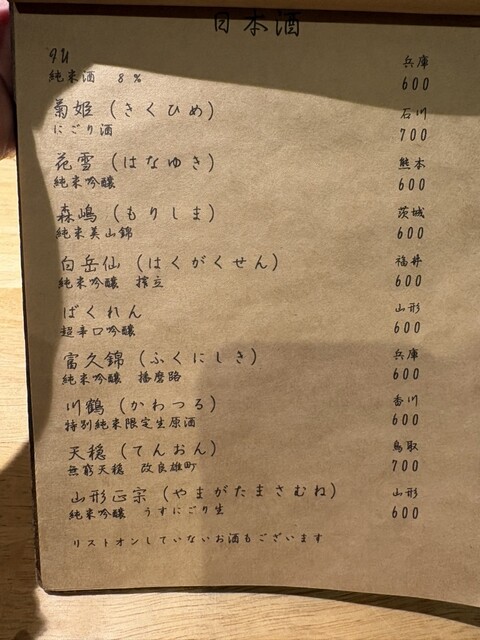 日本酒
gu 兵庫
純米酒 8% 600
菊姫(きくひめ) 石川
にごり酒 700
花雪(はなゆき) 熊本
純米吟醸 600
森嶋(もりしま) 茨城
純米美山錦 600
白岳仙(はくがくせん) 福井
純米吟醸 搾立 600
ばくれん 山形
超辛口吟醸 600
富久錦(ふくにしき) 兵庫
純米吟醸 播磨路 600
川鶴(かわつる) 香川
特別純米限定生原酒 600
天穏(てんおん) 鳥取
無窮天穏 改良雄町 700
山形正宗(やまがたまさむね) 山形
純米吟醸 うすにごり生 600
リストオンしていないお酒もございます